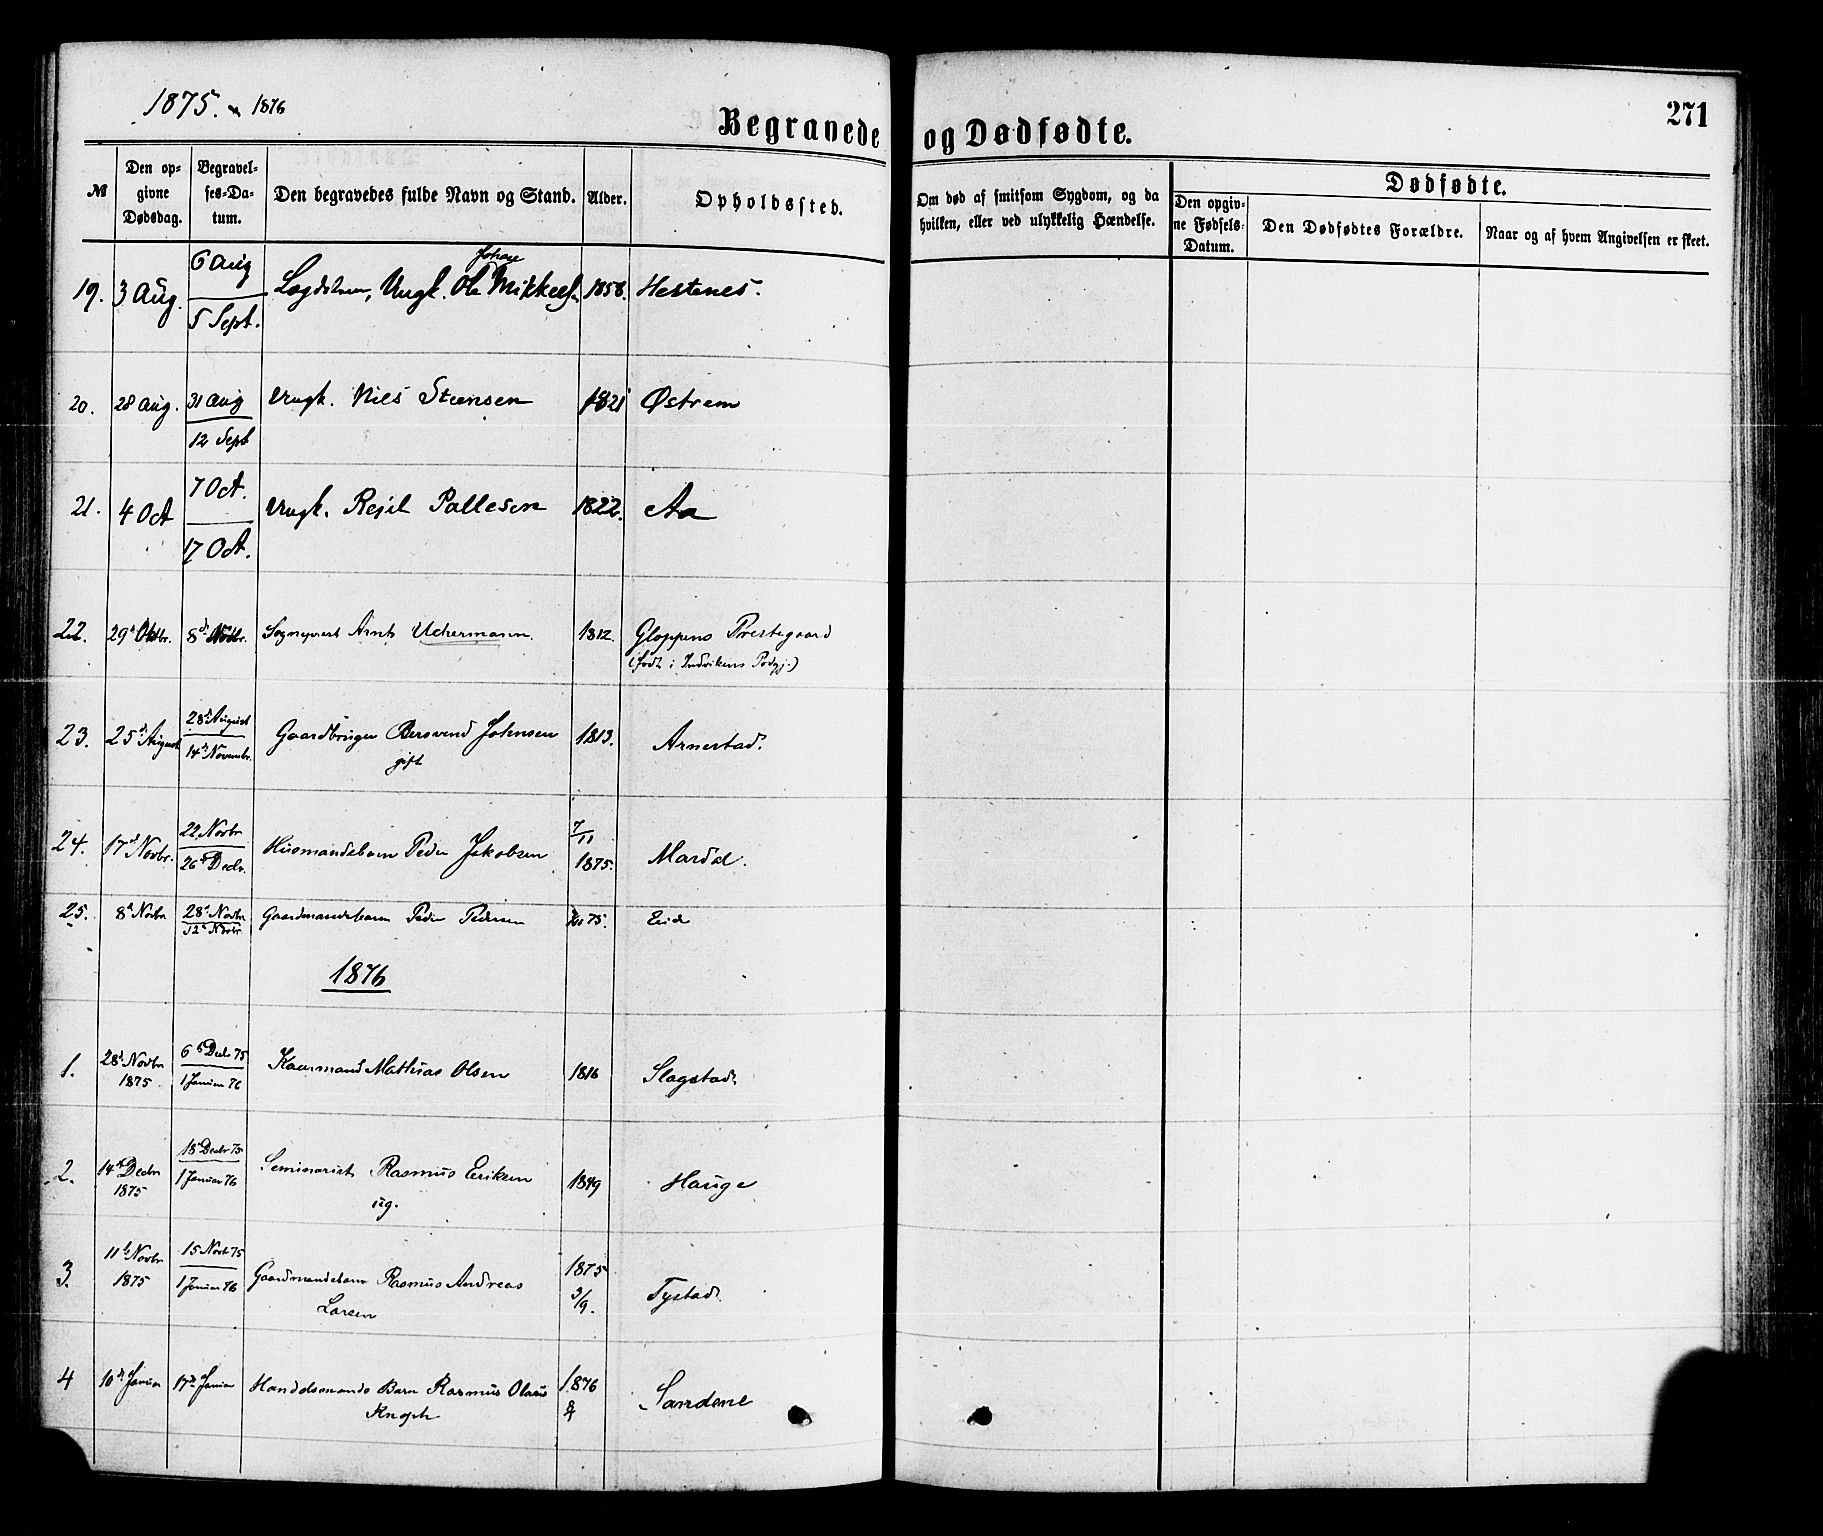 1875. - 1876
Begravede og Dødfødte.
271
№
Den opgivne Dødsdag.
Begravelses-Datum.
Den begravedes fulde Navn og Stand.
Alder.
Opholdssted.
Om død af smitsom Sygdom, og da hvilken, eller ved ulykkelig Hændelse.
Dødfødte.
Den opgivne Fødsels-Datum.
Den Dødfødtes Forældre.
Naar og af hvem Angivelsen er skeet.
19. 3 Aug. 6 Aug 5 Sept. Lægdslem, Ungk. Ole Johan Mikkels 1858. Hestenes.
20. 28 Aug. 31 Aug 12 Sept Ungk. Nils Steensen 1821 Østrem
21. 4 Oct 7 Oct. 17 Oct. Ungk. Rejel Pallesen 1822. Aa
22. 29d Oktbr. 8d Novbr. Sognepræst Arnt Uchermann. 1812. Gloppens Prestegaard
(født i Indvikens Prstgj.)
23. 25d August 28d August 14d Novembr. Gaardbruger Bersvend Johnsen 1813. Arnestad.
gift
24. 17d Novbr. 22 Novbr 26d Decbr. Husmandsbarn Peder Jakobsen 7/11 1875. Mardal.
25. 8d Novbr 28d Novbr 12d Novbr Gaardmandsbarn Peder Pedersen 75. Eide
1876
1. 28d Novbr 1875. 6d Decbr 75 1 Januar 76 Kaarmand Mathias Olsen 1816 Slagstad.
2. 14d Decbr 1875 18d Decbr 75 1 Januar 76 Seminarist Rasmus Eriksen 1849 Hauge
ug.
3. 11t Novbr 1875 15 Novb 75 1 Januar 76 Gaardmandsbarn Rasmus Andreas 1875 3/9. Tystad.
Larsen
4 10d Januar 17d Januar Handelsmands Barn Rasmus Olaus 1876 Sandene
Knoph